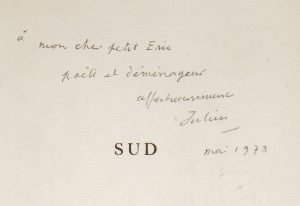 à mon cher petit Eric
poète et déménageur
affectueusement
Julien
SUD
mai 1973